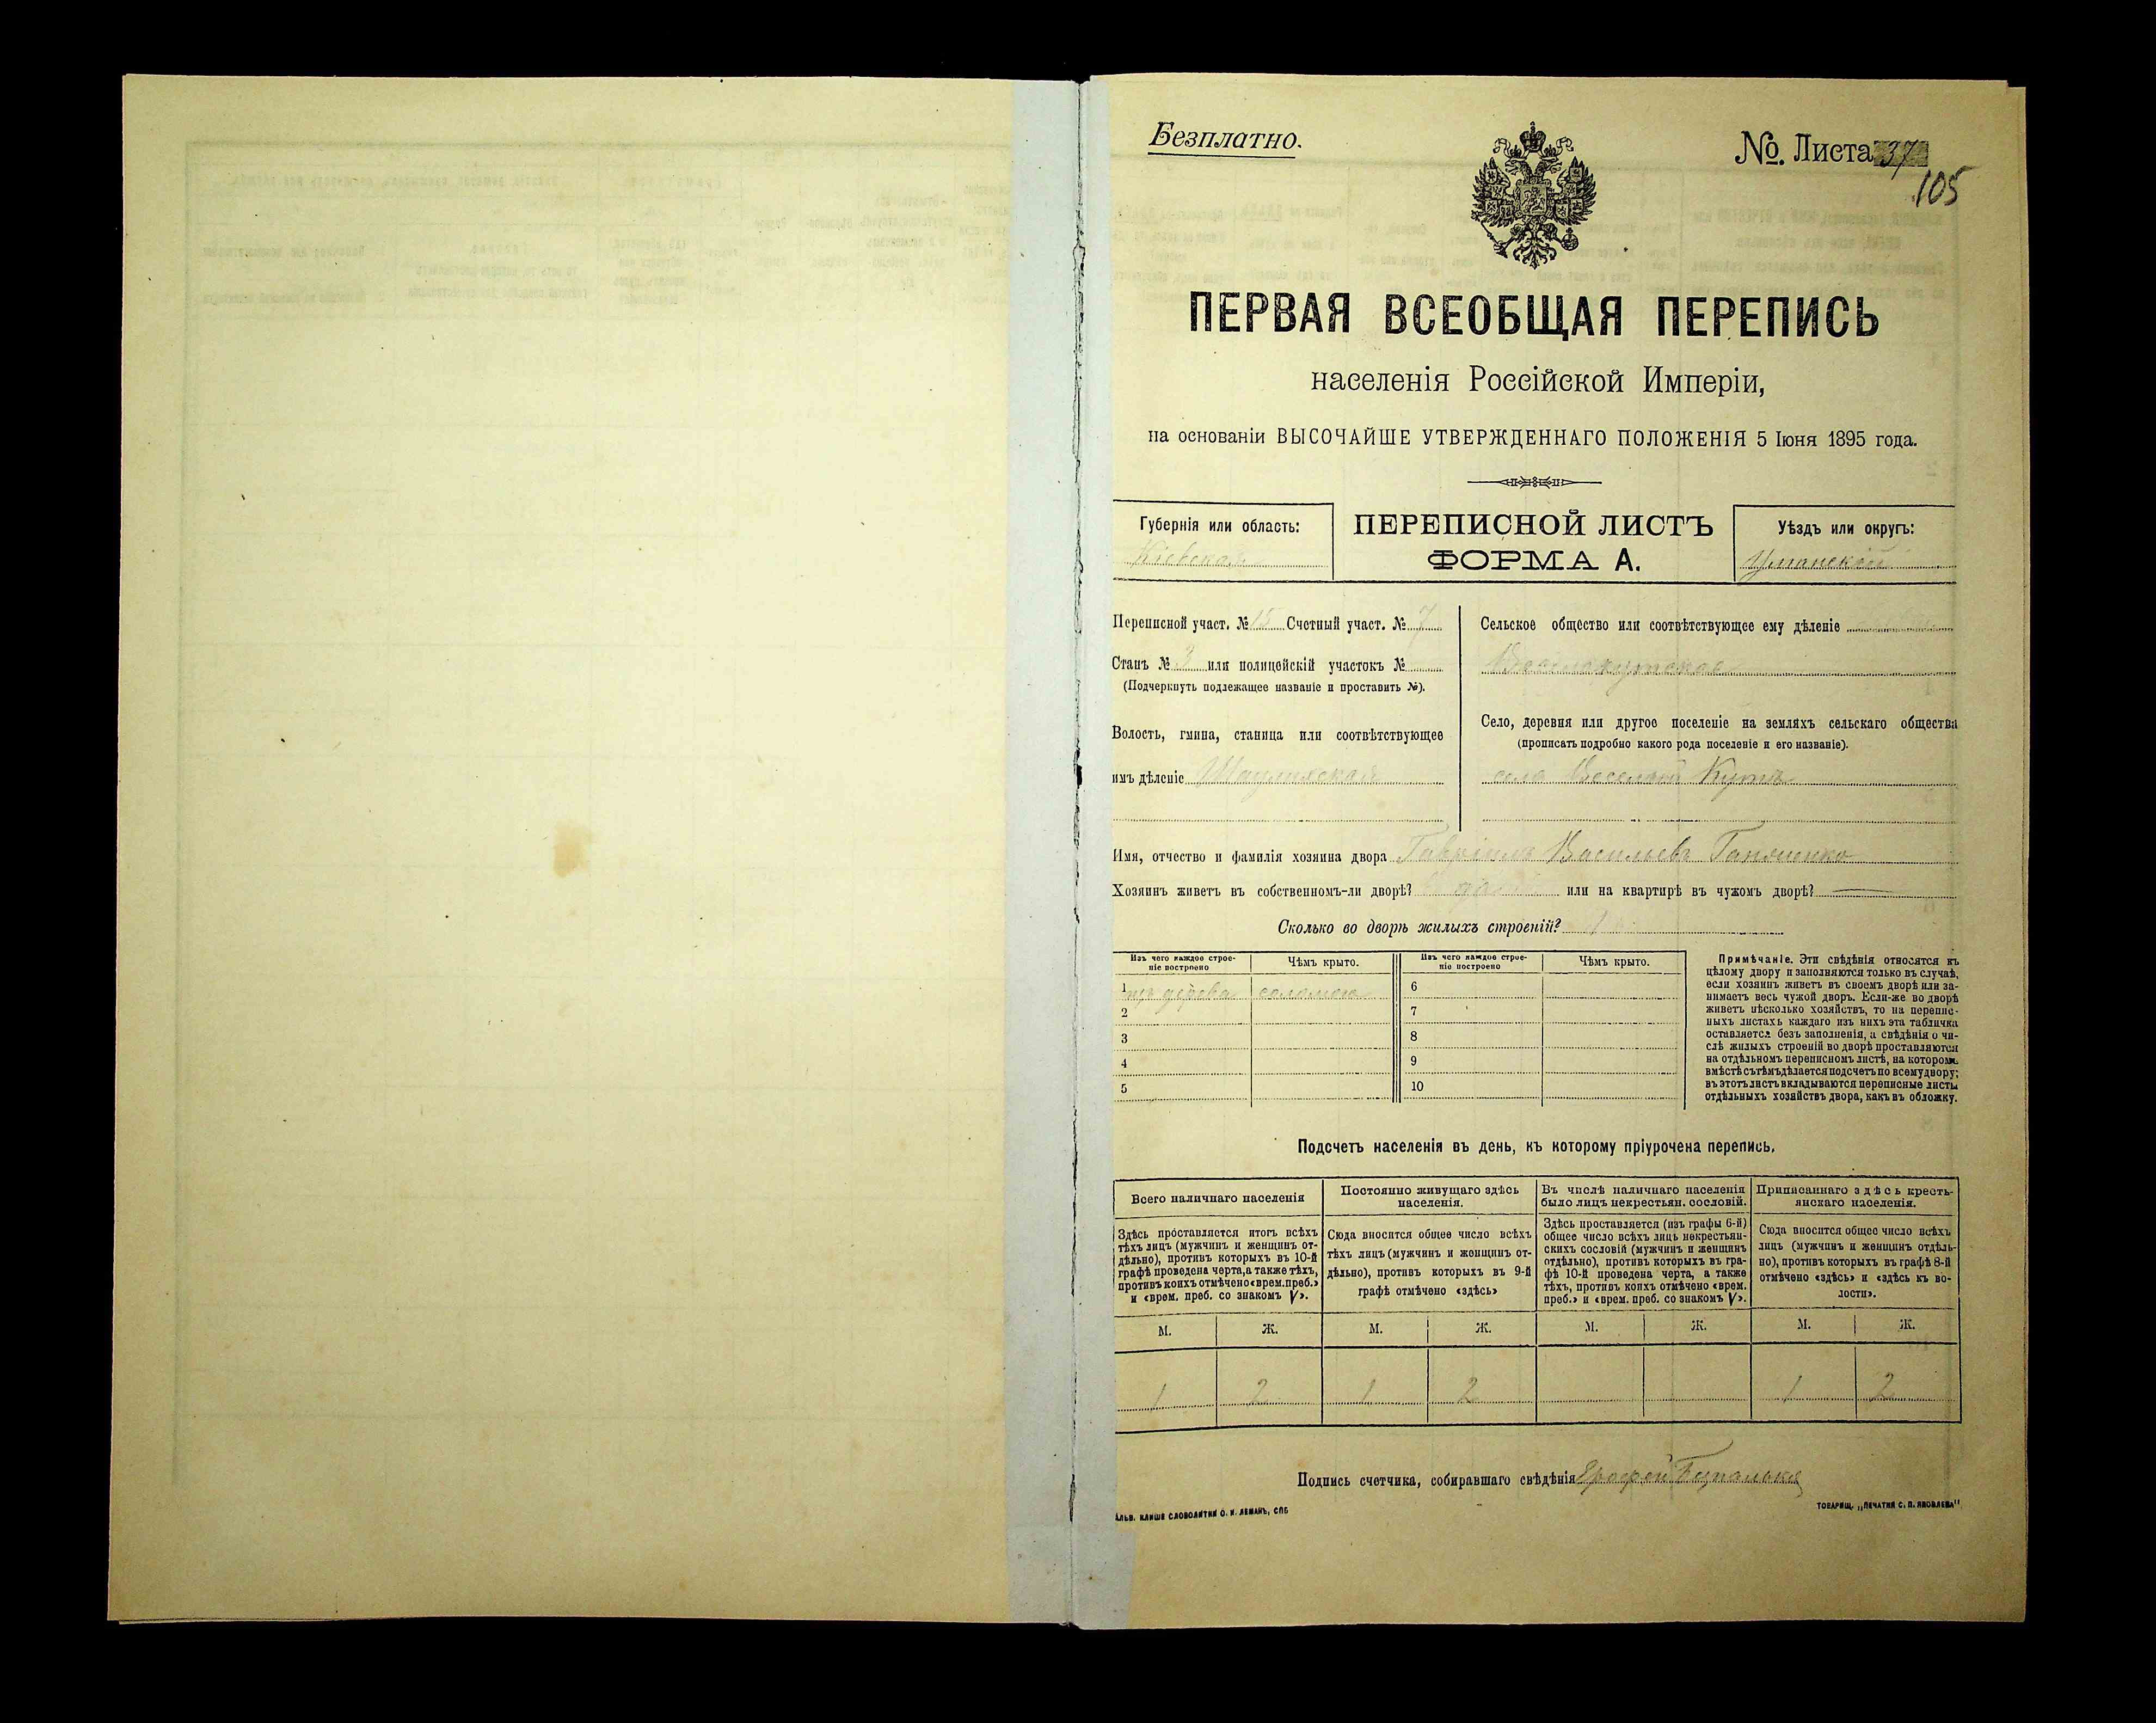 Безплатно.
№. Листа 37
105
ПЕРВАЯ ВСЕОБЩАЯ ПЕРЕПИСЬ
населенія Россійской Имперіи,
на основаніи ВЫСОЧАЙШЕ УТВЕРЖДЕННАГО ПОЛОЖЕНІЯ 5 Іюня 1895 года.
Губернія или область:
Кіевская
ПЕРЕПИСНОЙ ЛИСТЪ
ФОРМА А.
Уѣздъ или округъ:
Уманскій
Переписной участ. № 15 Счетный участ. № 7
Станъ № 3 или полицейскій участокъ №
(Подчеркнуть подлежащее названіе и проставить №).
Волость, гмина, станица или соотвѣтствующее
имъ дѣленіе
Сельское общество или соотвѣтствующее ему дѣленіе
Веселокутское
Село, деревня или другое поселеніе на земляхъ сельскаго общества
(прописать подробно какого рода поселеніе и его названіе).
село Веселый Кутъ
Имя, отчество и фамилія хозяина двора Гавріилъ Васильевъ
Хозяинъ живетъ въ собственномъ-ли дворѣ? да или на квартирѣ въ чужомъ дворѣ?
Сколько во дворѣ жилыхъ строеній? 1
Изъ чего каждое строе-
ніе построено
Чѣмъ крыто.
Изъ чего каждое строе-
ніе построено
Чѣмъ крыто.
1 изъ дерева соломою 6
2 7
3 8
4 9
5 10
Примѣчаніе. Эти свѣдѣнія относятся къ
цѣлому двору и заполняются только въ случаѣ,
если хозяинъ живетъ въ своемъ дворѣ или за-
нимаетъ весь чужой дворъ. Если-же во дворѣ
живетъ нѣсколько хозяйствъ, то на перепис-
ныхъ листахъ каждаго изъ нихъ эта табличка
оставляется безъ заполненія, а свѣдѣнія о чи-
слѣ жилыхъ строеній во дворѣ проставляются
на отдѣльномъ переписномъ листѣ, на которомъ
вмѣстѣ съ тѣмъ дѣлается подсчетъ по всему двору;
въ этотъ листъ вкладываются переписные листы
отдѣльныхъ хозяйствъ двора, какъ въ обложку.
Подсчетъ населенія въ день, къ которому пріурочена перепись.
Всего наличнаго населенія
Здѣсь проставляется итогъ всѣхъ
тѣхъ лицъ (мужчинъ и женщинъ от-
дѣльно), противъ которыхъ въ 10-й
графѣ проведена черта, а также тѣхъ,
противъ коихъ отмѣчено «врем. преб.»
и «врем. преб. со знакомъ V».
Постоянно живущаго здѣсь
населенія.
Сюда вносится общее число всѣхъ
тѣхъ лицъ (мужчинъ и женщинъ от-
дѣльно), противъ которыхъ въ 9-й
графѣ отмѣчено «здѣсь»
Въ числѣ наличнаго населенія
было лицъ некрестьян. сословій.
Здѣсь проставляется (изъ графы 6-й)
общее число всѣхъ лицъ некрестьян-
скихъ сословій (мужчинъ и женщинъ
отдѣльно), противъ которыхъ въ гра-
фѣ 10-й проведена черта, а также
тѣхъ, противъ коихъ отмѣчено «врем.
преб.» и «врем. преб. со знакомъ V».
Приписаннаго здѣсь кресть-
янскаго населенія.
Сюда вносится общее число всѣхъ
лицъ (мужчинъ и женщинъ отдѣль-
но), противъ которыхъ въ графѣ 8-й
отмѣчено «здѣсь» и «здѣсь къ во-
лости».
М. Ж. М. Ж. М. Ж. М. Ж.
1 2 1 2 1 2
Подпись счетчика, собиравшаго свѣдѣнія Ерофей
ГАЛЬВ. КЛИШЕ СЛОВОЛИТНИ О. И. ЛЕМАНЪ, СПБ
ТОВАРИЩ. „ПЕЧАТНЯ С. П. ЯКОВЛЕВА"